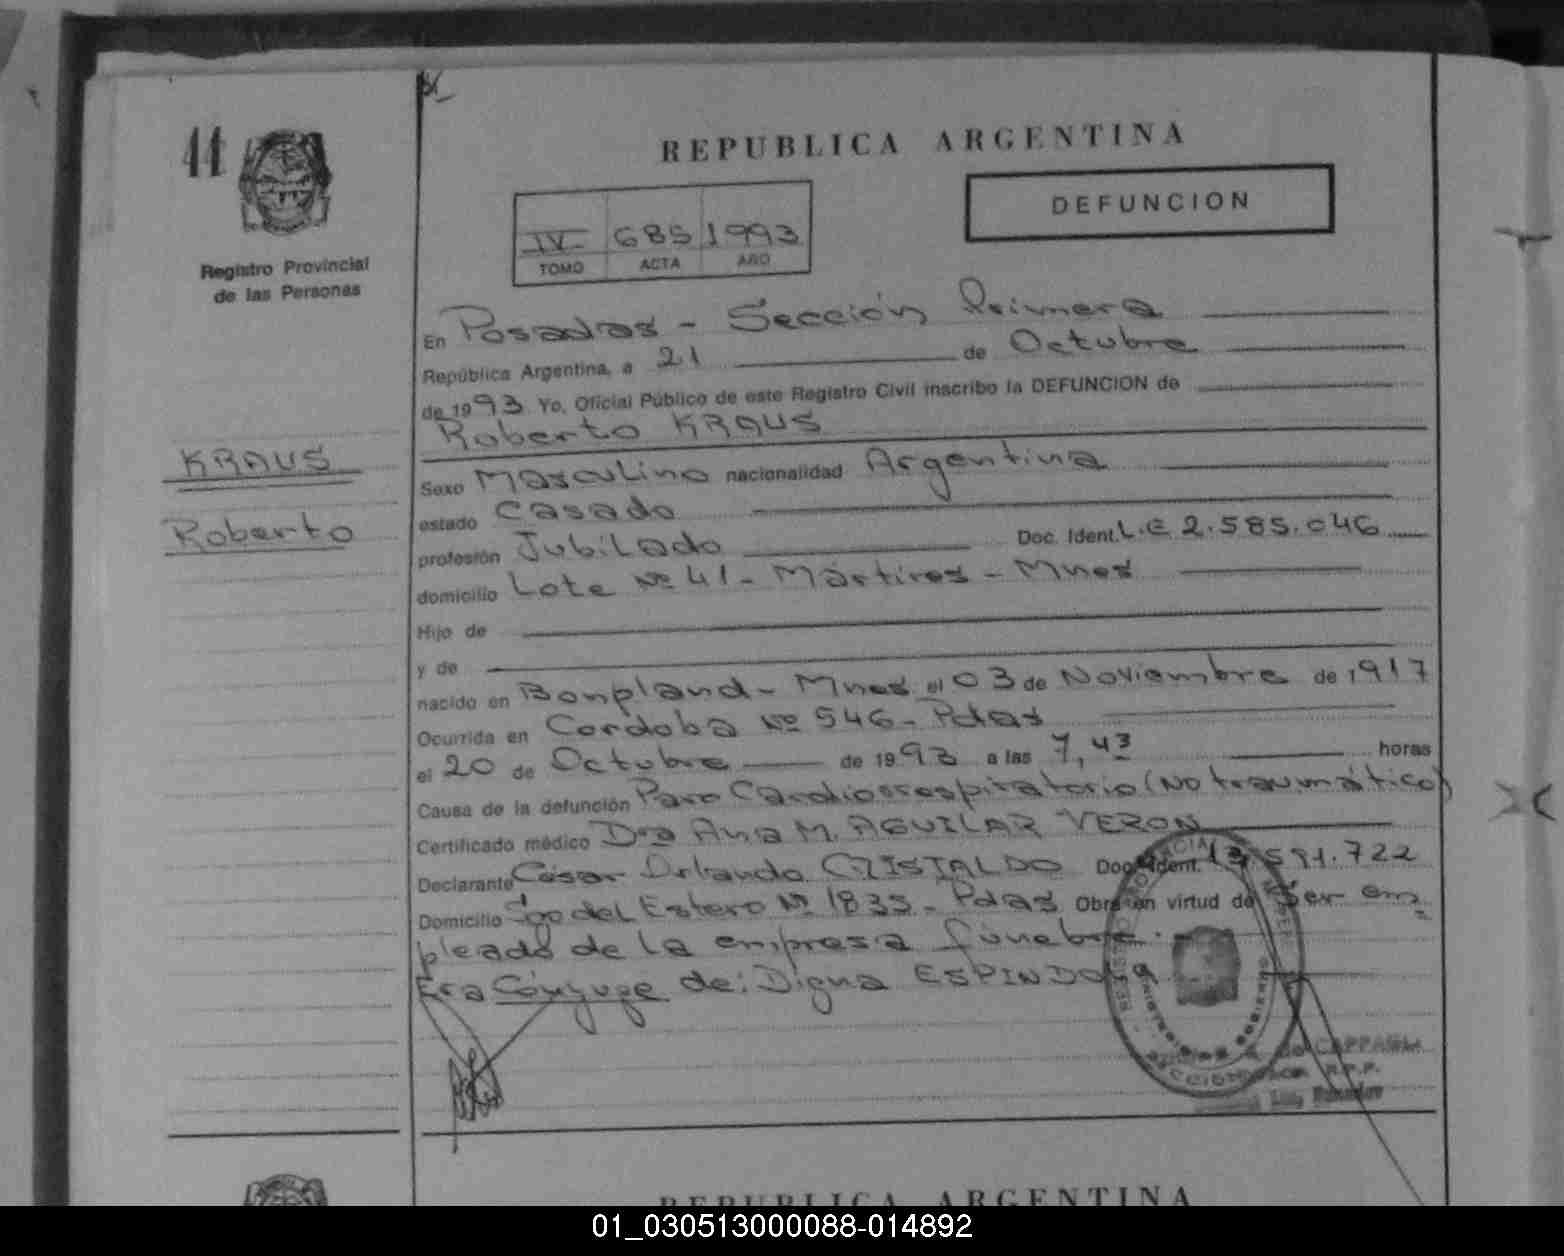 44
Registro Provincial
de las Personas
KRAUS
Roberto
REPUBLICA ARGENTINA
DEFUNCION
IV 685 1993
TOMO ACTA AÑO
En Posadas - Sección Primera
República Argentina, a 21 de Octubre
de 1993 Yo, Oficial Público de este Registro Civil inscribo la DEFUNCION de
Roberto KRAUS
Sexo Masculino nacionalidad Argentina
estado Casado
profesión Jubilado Doc. Ident. L.E 2.585.046
domicilio Lote Nº 41 - Mártires - Mnes
Hijo de
y de
nacido en Bonpland - Mnes el 03 de Noviembre de 1917
Ocurrida en Córdoba Nº 546 - Pdas
el 20 de Octubre de 1993 a las 7,43 horas
Causa de la defunción Paro Cardiorrespiratorio (No traumático)
Certificado médico Dra Ana M. AGUILAR VERON
Declarante César Orlando CRISTALDO Doc. Ident. 591.722
Domicilio Sgo del Estero Nº 1835 - Pdas Obra en virtud de Ser em
pleado de la empresa fúnebre.
Era Cónyuge de: Digna ESPINDOLA
REPUBLICA ARGENTINA
01_030513000088-014892